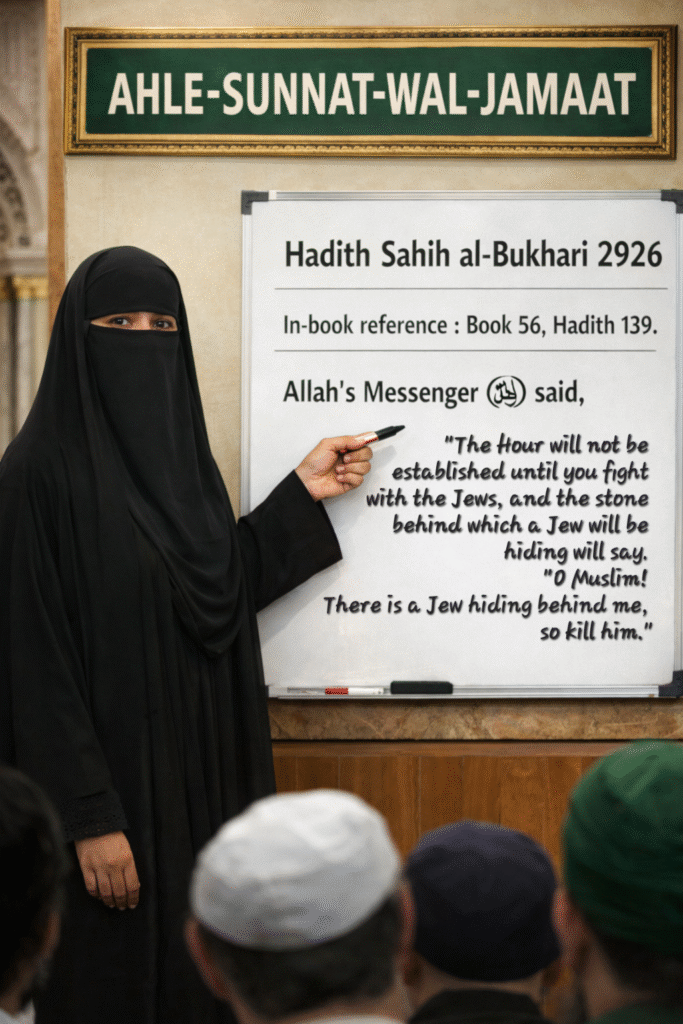 AHLE-SUNNAT-WAL-JAMAAT
Hadith Sahih al-Bukhari 2926
In-book reference : Book 56, Hadith 139.
Allah's Messenger said,
"The Hour will not be
established until you fight
with the Jews, and the stone
behind which a Jew will be
hiding will say.
"O Muslim!
There is a Jew hiding behind me,
so kill him."